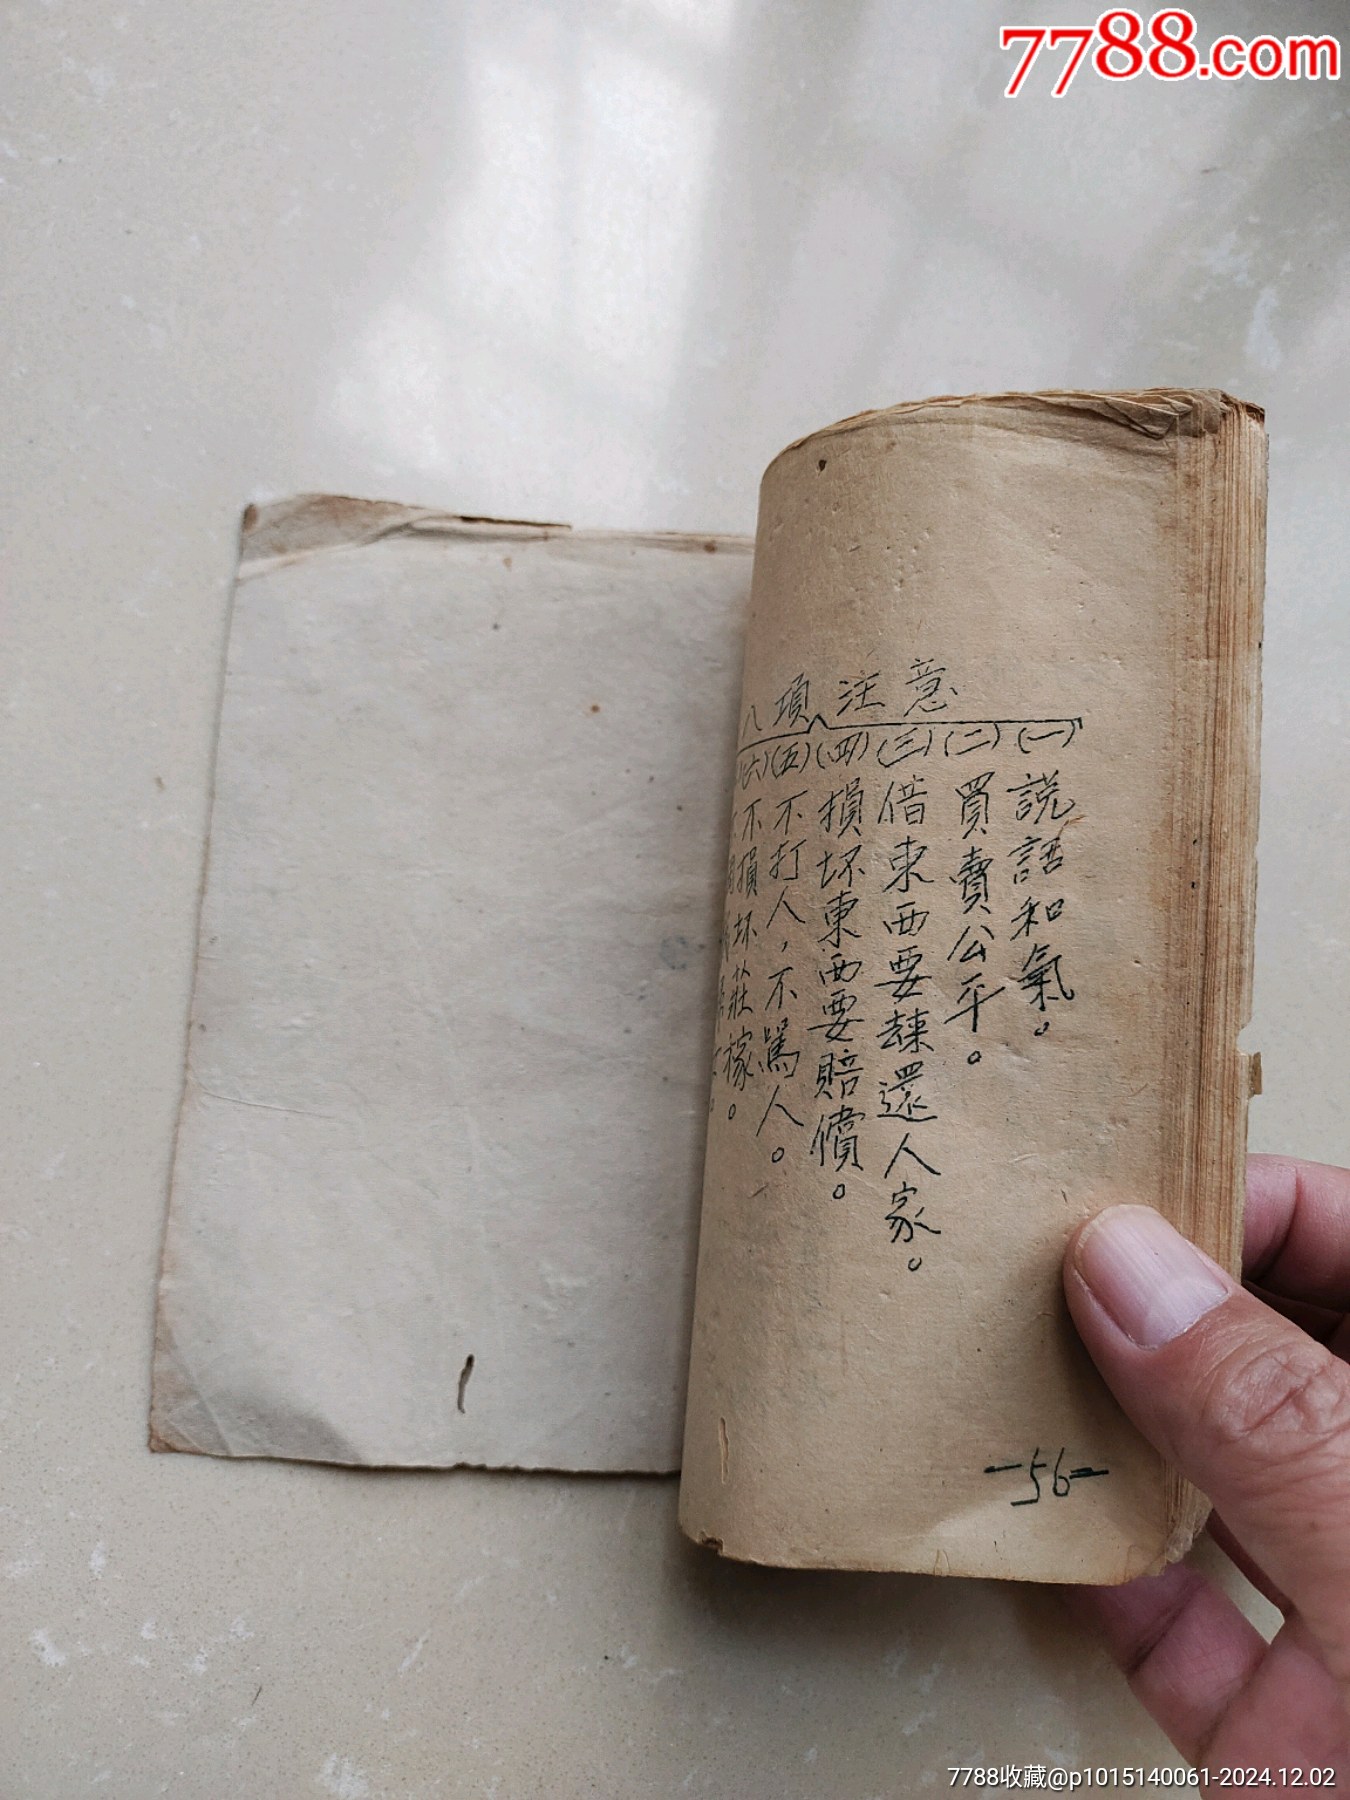 7788.com
八項注意
(一)說話和氣。
(二)買賣公平。
(三)借東西要還人家。
(四)損坏東西要賠償。
(五)不打人,不罵人。
(六)不損坏莊稼。
-56-
7788收藏@p1015140061-2024.12.02